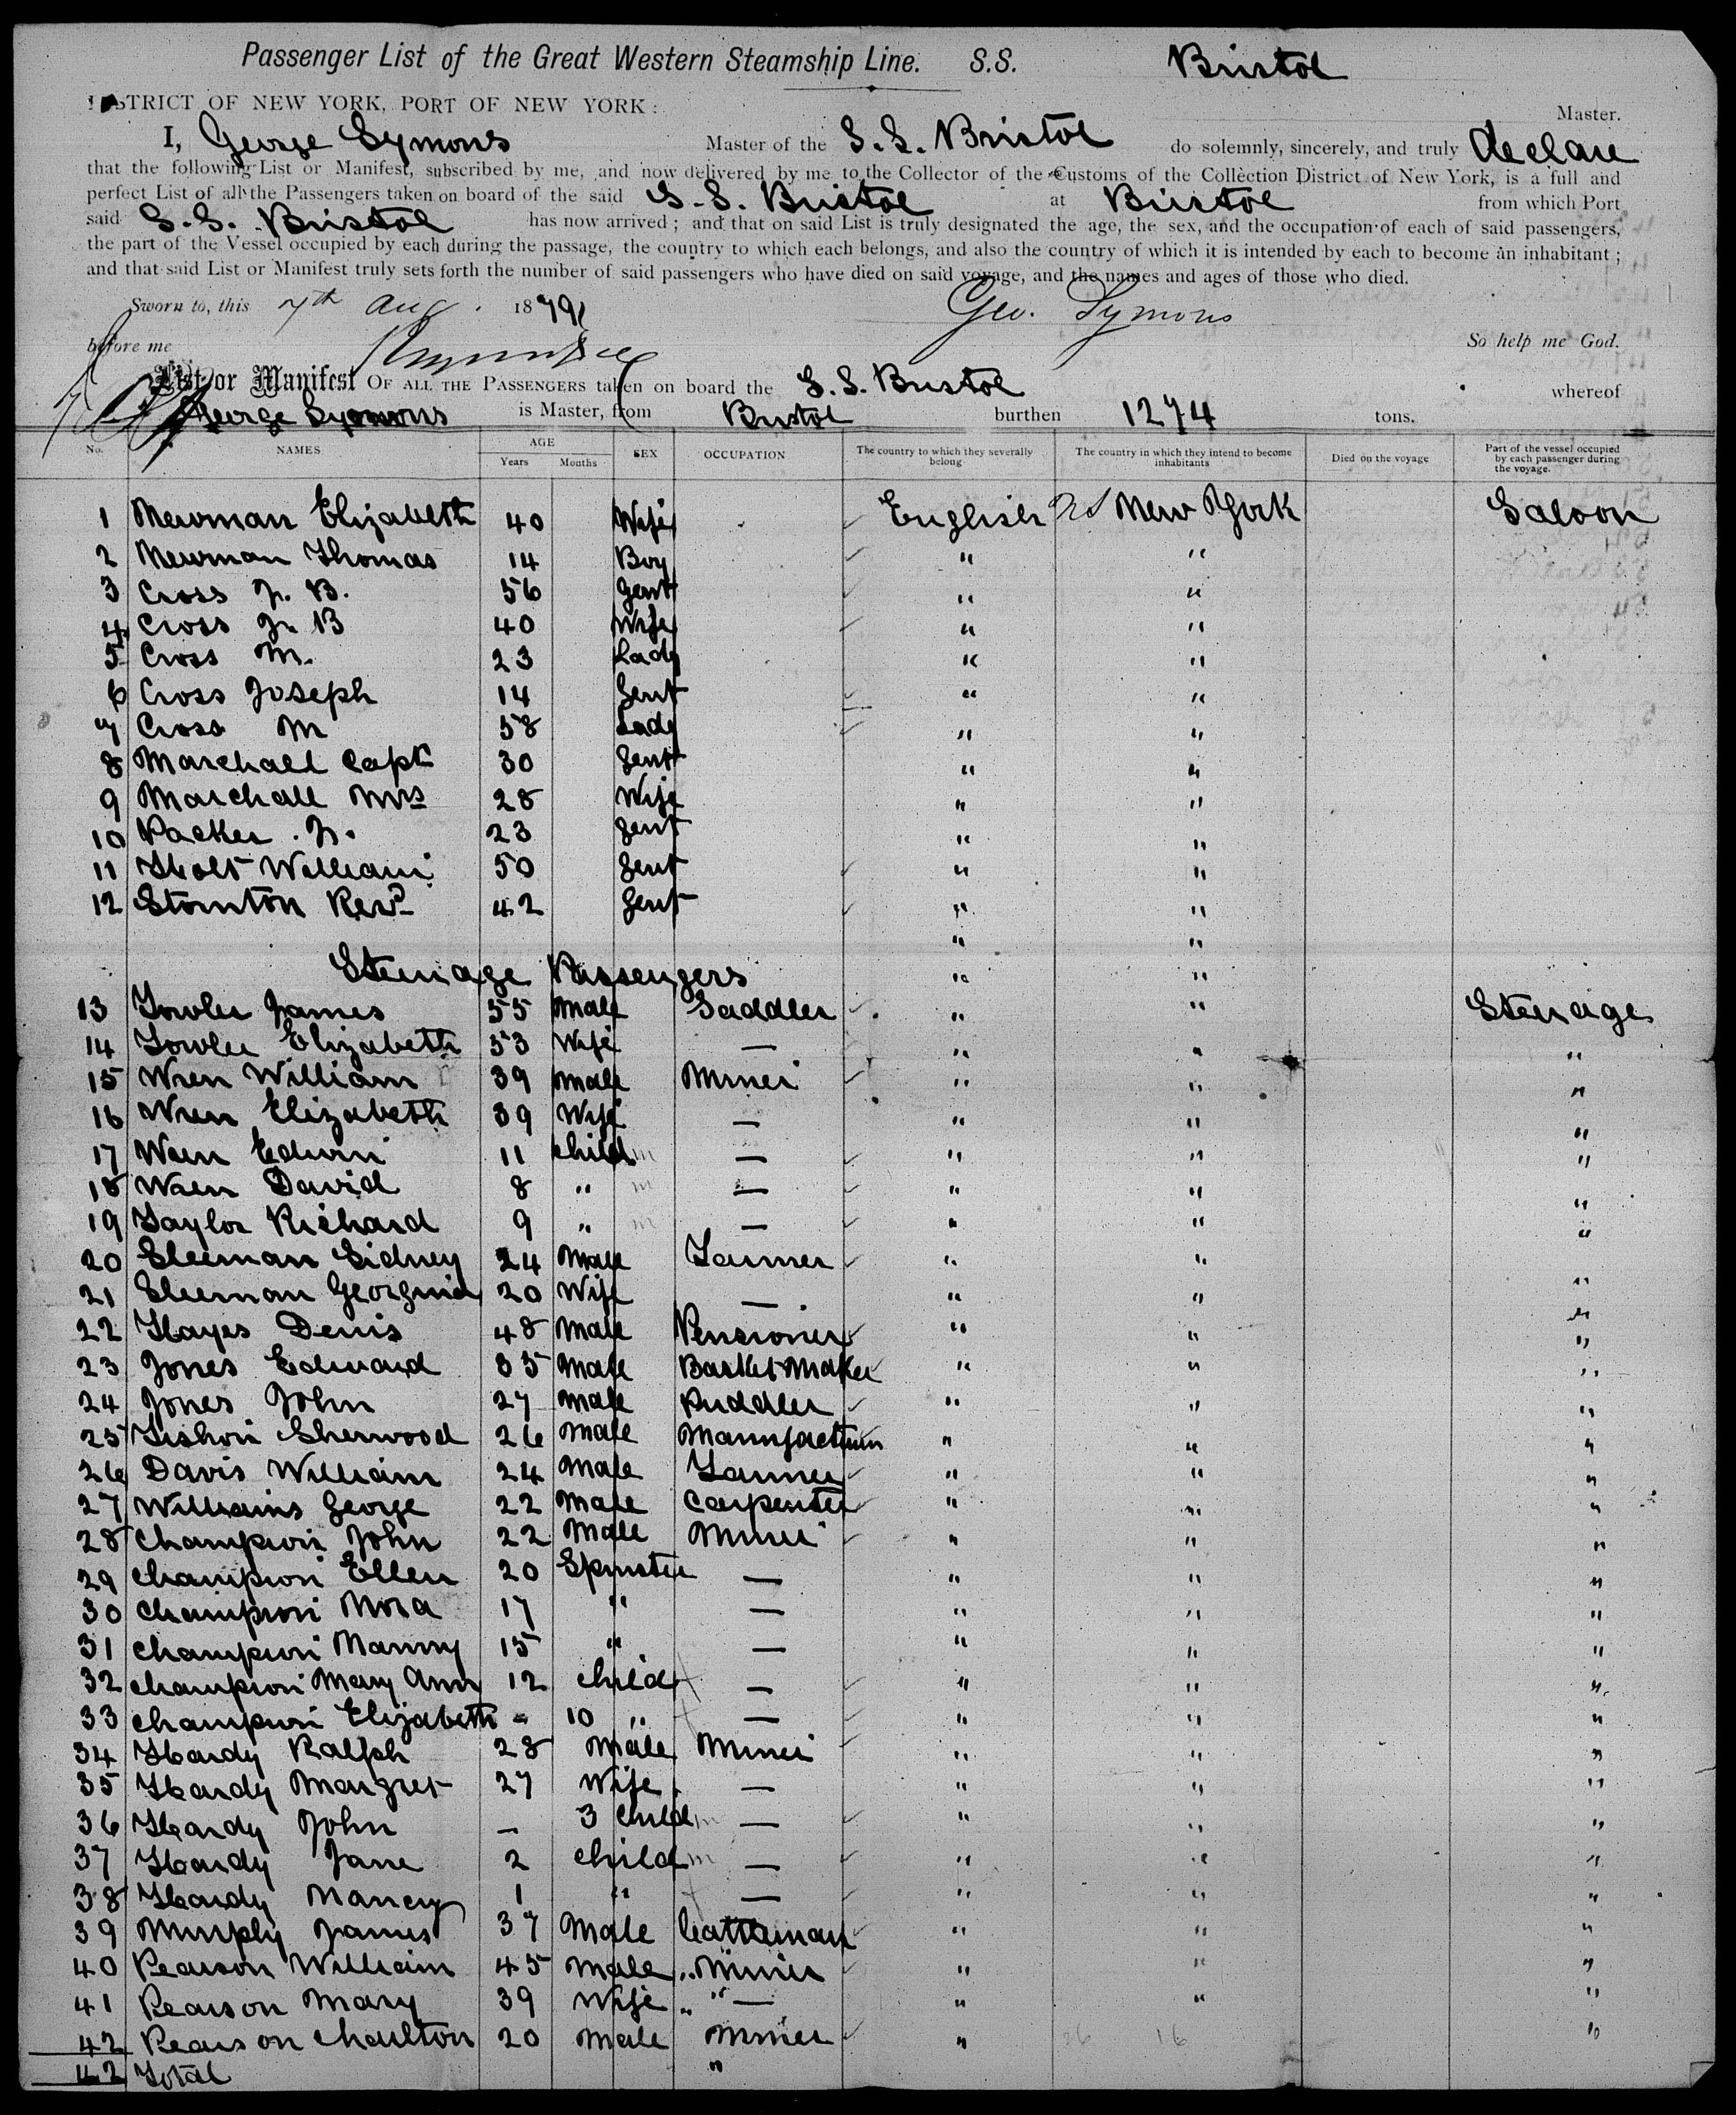 Passenger List of the Great Western Steamship Line. S.S. Bristol
DISTRICT OF NEW YORK, PORT OF NEW YORK: Master.
I, George Symons Master of the S.S. Bristol do solemnly, sincerely, and truly declare
that the following List or Manifest, subscribed by me, and now delivered by me to the Collector of the Customs of the Collection District of New York, is a full and
perfect List of all the Passengers taken on board of the said S.S. Bristol at Bristol from which Port
said S.S. Bristol has now arrived; and that on said List is truly designated the age, the sex, and the occupation of each of said passengers,
the part of the Vessel occupied by each during the passage, the country to which each belongs, and also the country of which it is intended by each to become an inhabitant;
and that said List or Manifest truly sets forth the number of said passengers who have died on said voyage, and the names and ages of those who died.
Sworn to, this 7th Aug. 1879 Geo. Symons
before me So help me God.
List or Manifest OF ALL THE PASSENGERS taken on board the S.S. Bristol whereof
George Symons is Master, from Bristol burthen 1274 tons.
No. NAMES AGE Years Months SEX OCCUPATION The country to which they severally belong The country in which they intend to become inhabitants Died on the voyage Part of the vessel occupied by each passenger during the voyage.
1 Newman Elizabeth 40 Wife English New York Saloon
2 Newman Thomas 14 Boy " "
3 Cross J. B. 56 Gent " "
4 Cross J. B 40 Wife " "
5 Cross M. 23 Lady " "
6 Cross Joseph 14 Gent " "
7 Cross M 58 Lady " "
8 Marchall Capt 30 Gent " "
9 Marchall Mrs 28 Wife " "
10 Packer . J. 23 Gent " "
11 Holt William 50 Gent " "
12 Stonton Revd 42 Gent " "
" "
Steerage Passengers " "
13 Fowler James 55 Male Saddler " " Steerage
14 Fowler Elizabeth 53 Wife — " " "
15 Wren William 39 Male Miner " " "
16 Wren Elizabeth 39 Wife — " " "
17 Wren Edwin 11 child m — " " "
18 Wren David 8 " m — " " "
19 Taylor Richard 9 " m — " " "
20 Sleeman Sidney 24 Male Farmer " " "
21 Sleeman Georgina 20 Wife — " " "
22 Hayes Denis 48 Male Pensioner " " "
23 Jones Edward 35 Male Basket Maker " " "
24 Jones John 27 Male Puddler " " "
25 Sherwood 26 Male Manufacturer " " "
26 Davis William 24 Male Farmer " " "
27 Williams George 22 Male Carpenter " " "
28 Champion John 22 Male Miner " " "
29 Champion Ellen 20 Spinster — " " "
30 Champion Nora 17 " — " " "
31 Champion Nanny 15 " — " " "
32 Champion Mary Ann 12 child — " " "
33 Champion Elizabeth " 10 " — " " "
34 Hardy Ralph 28 Male Miner " " "
35 Hardy Margret 27 Wife — " " "
36 Hardy John — 3 child m — " " "
37 Hardy Jane 2 child m — " " "
38 Hardy Nancy 1 " — " " "
39 Murphy James 37 Male Cattleman " " "
40 Pearson William 45 Male " Miner " " "
41 Pearson Mary 39 Wife " " — " " "
42 Pearson Charlton 20 Male Miner " 26 16 "
42 Total "